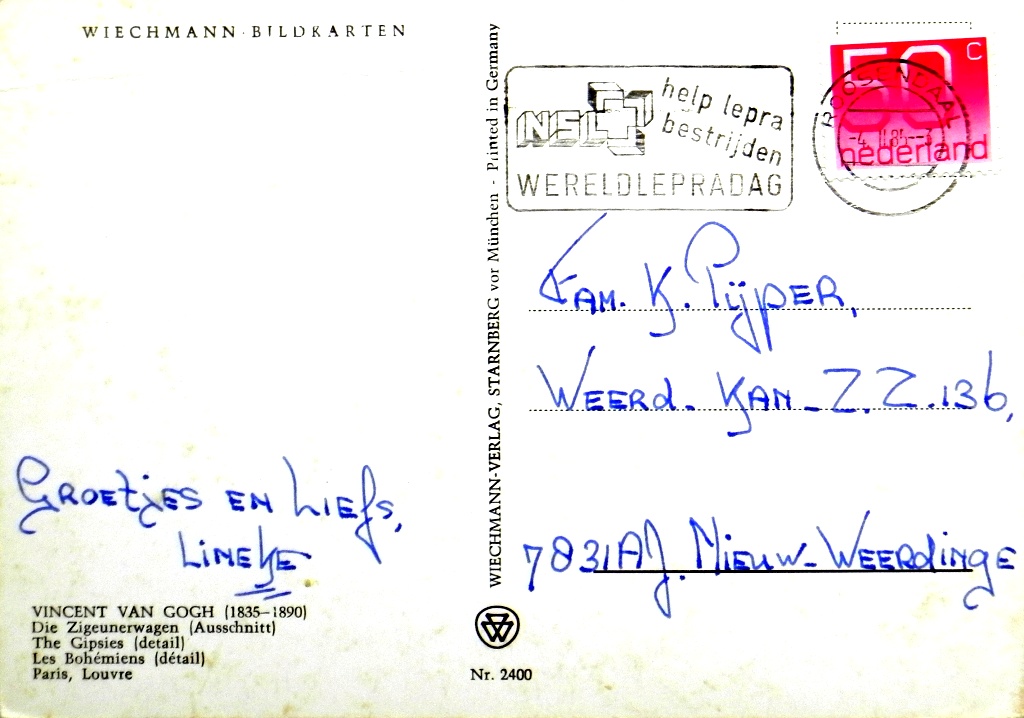 WIECHMANN-BILDKARTEN
WIECHMANN-VERLAG, STARNBERG vor München - Printed in Germany
NSL
help lepra
bestrijden
WERELDLEPRADAG
ROOSENDAAL
50 c
nederland
Fam. K. Pijper,
Weerd. Kan. Z.Z. 136,
7831 AJ. Nieuw-Weerdinge
Groetjes en Liefs,
Lineke
VINCENT VAN GOGH (1835–1890)
Die Zigeunerwagen (Ausschnitt)
The Gipsies (detail)
Les Bohémiens (détail)
Paris, Louvre
Nr. 2400